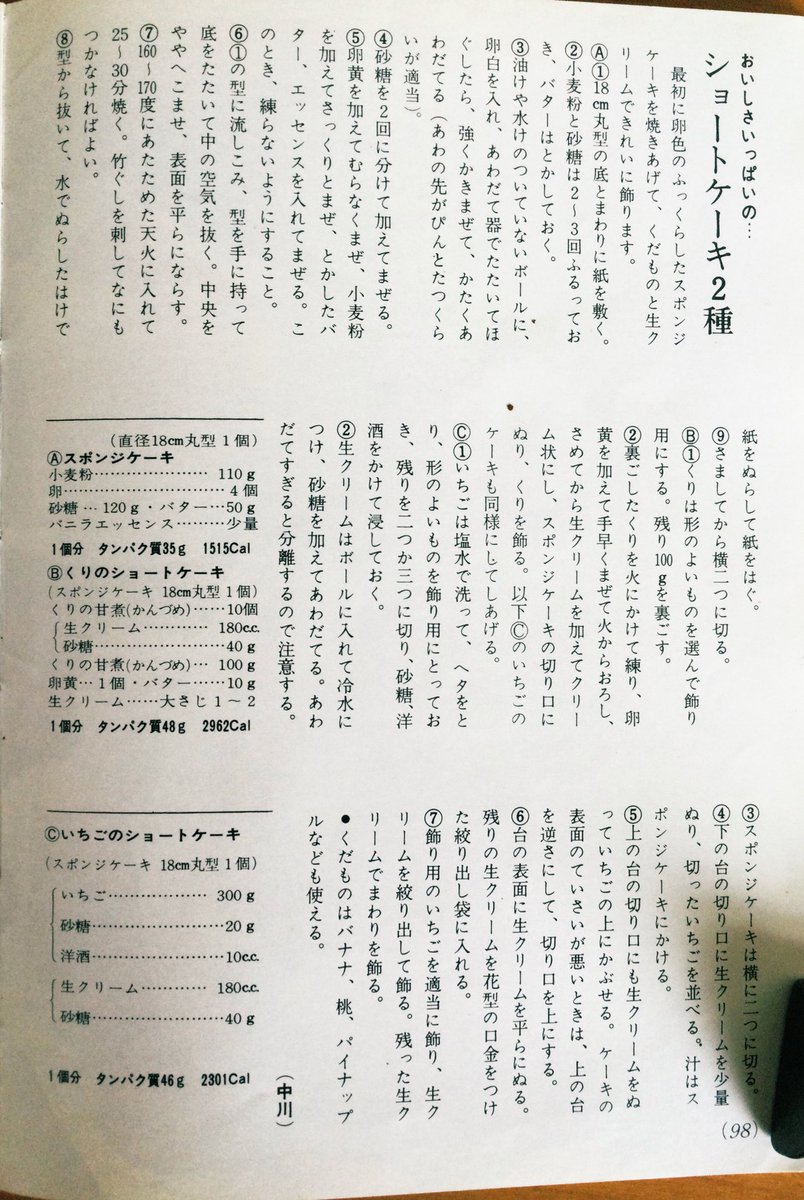 おいしさいっぱいの…
ショートケーキ2種
最初に卵色のふっくらしたスポンジ
ケーキを焼きあげて、くだものと生ク
リームできれいに飾ります。
Ⓐ①18cm丸型の底とまわりに紙を敷く。
②小麦粉と砂糖は2〜3回ふるってお
き、バターはとかしておく。
③油けや水けのついていないボールに、
卵白を入れ、あわだて器でたたいてほ
ぐしたら、強くかきまぜて、かたくあ
わだてる（あわの先がぴんとたつくら
いが適当）。
④砂糖を2回に分けて加えてまぜる。
⑤卵黄を加えてむらなくまぜ、小麦粉
を加えてさっくりとまぜ、とかしたバ
ター、エッセンスを入れてまぜる。こ
のとき、練らないようにすること。
⑥①の型に流しこみ、型を手に持って
底をたたいて中の空気を抜く。中央を
ややへこませ、表面を平らにならす。
⑦160〜170度にあたためた天火に入れて
25〜30分焼く。竹ぐしを刺してなにも
つかなければよい。
⑧型から抜いて、水でぬらしたはけで
紙をぬらして紙をはぐ。
⑨さましてから横二つに切る。
Ⓑ①くりは形のよいものを選んで飾り
用にする。残り100gを裏ごす。
②裏ごしたくりを火にかけて練り、卵
黄を加えて手早くまぜて火からおろし、
さめてから生クリームを加えてクリー
ム状にし、スポンジケーキの切り口に
ぬり、くりを飾る。以下Ⓒのいちごの
ケーキも同様にしてしあげる。
Ⓒ①いちごは塩水で洗って、ヘタをと
り、形のよいものを飾り用にとってお
き、残りを二つか三つに切り、砂糖、洋
酒をかけて浸しておく。
②生クリームはボールに入れて冷水に
つけ、砂糖を加えてあわだてる。あわ
だてすぎると分離するので注意する。
（直径18cm丸型 1個）
Ⓐスポンジケーキ
小麦粉…………………110g
卵………………………4個
砂糖…120g・バター…50g
バニラエッセンス………少量
1個分 タンパク質35g 1515Cal
Ⓑくりのショートケーキ
（スポンジケーキ 18cm丸型 1個）
くりの甘煮(かんづめ)……10個
生クリーム…………180c.c.
砂糖…………………40g
くりの甘煮(かんづめ)…100g
卵黄…1個・バター…10g
生クリーム……大さじ1〜2
1個分 タンパク質48g 2962Cal
③スポンジケーキは横に二つに切る。
④下の台の切り口に生クリームを少量
ぬり、切ったいちごを並べる。汁はス
ポンジケーキにかける。
⑤上の台の切り口にも生クリームをぬ
っていちごの上にかぶせる。ケーキの
表面のていさいが悪いときは、上の台
を逆さにして、切り口を上にする。
⑥台の表面に生クリームを平らにぬる。
残りの生クリームを花型の口金をつけ
た絞り出し袋に入れる。
⑦飾り用のいちごを適当に飾り、生ク
リームを絞り出して飾る。残った生ク
リームでまわりを飾る。
●くだものはバナナ、桃、パイナップ
ルなども使える。
（中川）
Ⓒいちごのショートケーキ
（スポンジケーキ 18cm丸型 1個）
いちご………………300g
砂糖…………………20g
洋酒…………………10c.c.
生クリーム…………180c.c.
砂糖…………………40g
1個分 タンパク質46g 2301Cal
(98)